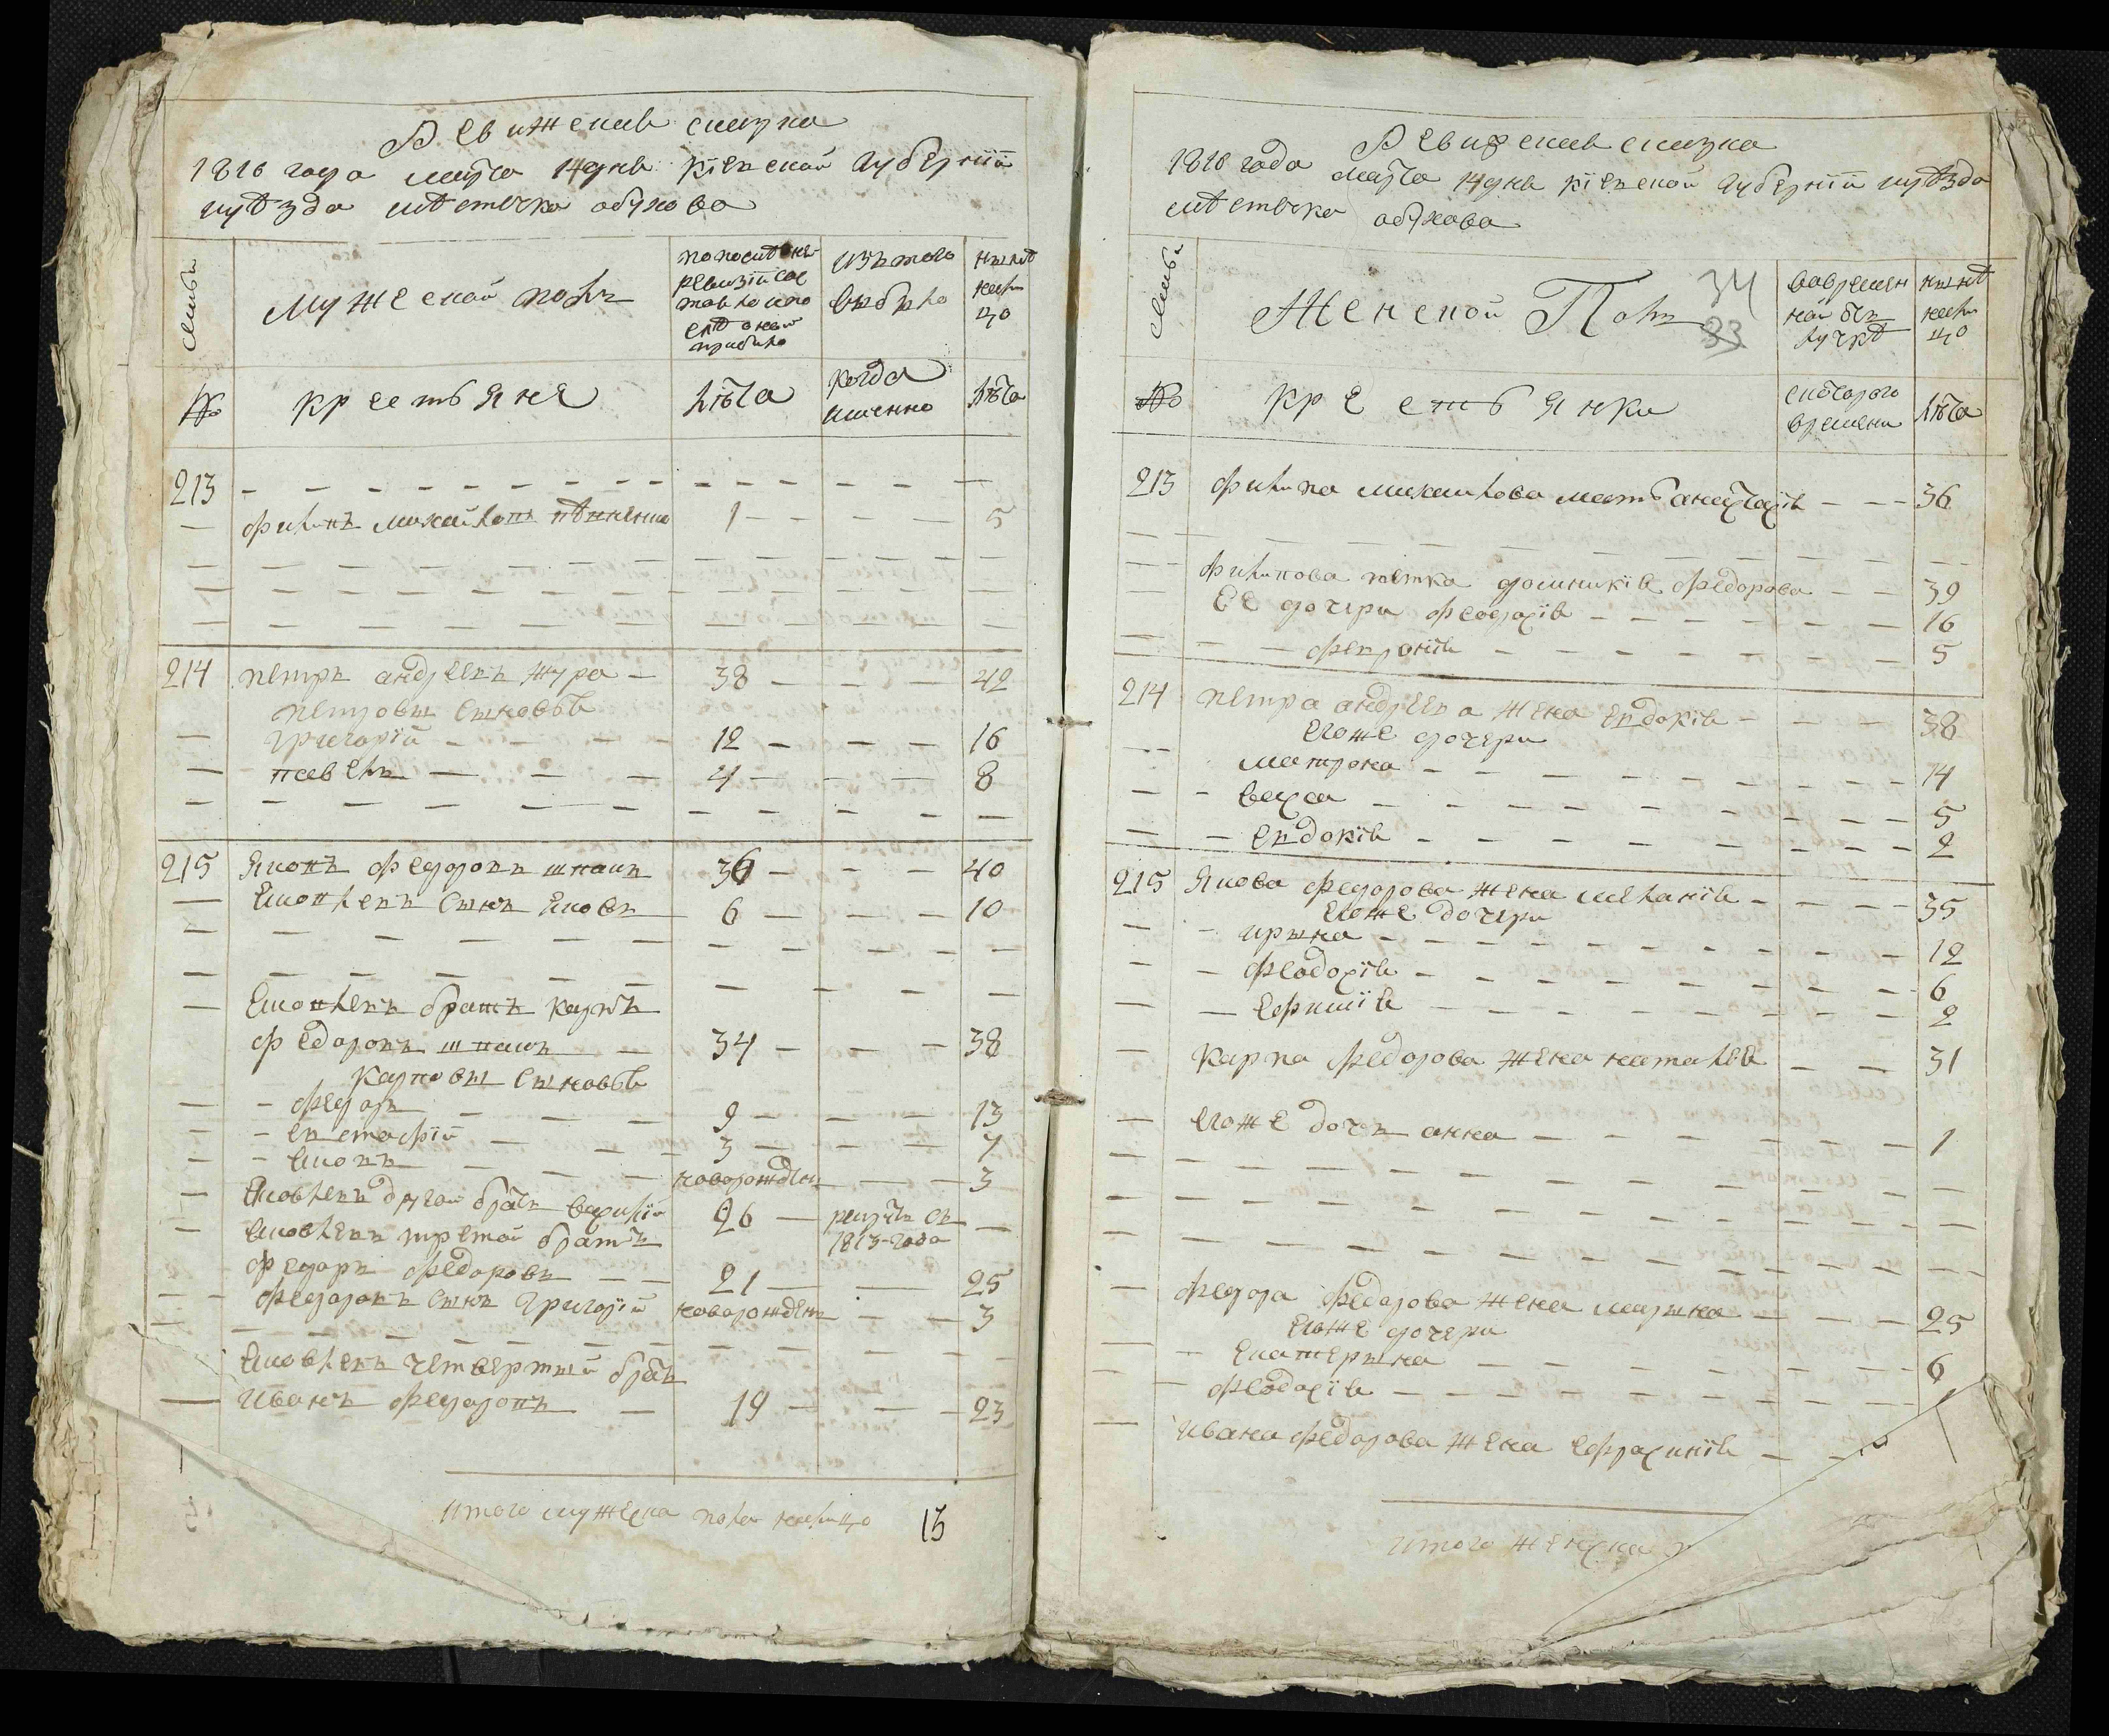 Ревижская сказка
1816 года марта 14 дня кіевской губерніи
уѣзда мѣстечка обухова
семьи
Мужеской полъ
по последней
ревизіи сос
тояло и по
слѣ оной
прибыло
изъ того
выбыло
нынѣ
нали
цо
№
крестьяне
лѣта
когда
именно
лѣта
213 — — — — — — — —
— филипъ михайловъ 1 — — — 5
— — — — — — — —
— — — — — — — —
— — — — — — — —
214 петръ андреевъ жура — 38 — — — 42
петровы сыновья
— григорій — — — 12 — — — 16
— павелъ — — — 4 — — — 8
— — — — — — — —
215 Яковъ федоровъ шпакъ 36 — — — 40
— Яковлевъ сынъ Яковъ 6 — — — 10
— — — — — — — —
— — — — — — — —
— Яковлевъ братъ карпъ
федоровъ шпакъ — 34 — — — 38
карповы сыновья
— — федоръ — — — 9 — — — 13
— — евстафій — — — 3 — — — 7
— — Яковъ — — — новорожденъ — — 3
— Яковлевъ другой братъ василій 26 — рекрутъ съ —
1813-года
— Яковлевъ третой братъ
федоръ федоровъ — — 21 — — 25
— — федоровъ сынъ григорій новорожденъ — — 3
— — — — — — — —
Яковлевъ четвертый братъ
— иванъ федоровъ — 19 — — — 23
итого мужеска пола налицо 13
Ревизская сказка
1816 года марта 14 дня кіевской губерніи уѣзда
мѣстечка обухова
34
33
семьи
Женской Полъ
во времен
ной от
лучкѣ
нынѣ
нали
цо
№
крестьянки
с котораго
времени
лѣта
213 филипа михайлова мать анастасія — — — 36
— — — — — — — —
— — филипова тетка домникія федорова — — 39
— Ее дочери феодосія — — — — — — 16
— — — февронія — — — — — — 5
214 петра андреева жена евдокія — — — 38
егоже дочери
— — матрона — — — — — — 14
— — васса — — — — — — 5
— — евдокія — — — — — — 2
215 Якова федорова жена меланія — — — 35
егоже дочери
— — ирына — — — — — — 12
— — феодосія — — — — — — 6
— — ефимія — — — — — — 2
— карпа федорова жена наталія — — 31
— егоже дочь анна — — — — — 1
— — — — — — — —
— — — — — — — —
— — — — — — — —
— федора федорова жена марына — — — 25
егоже дочери
— — Екатерына — — — — — 6
— — феодосія — — — — —
— ивана федорова жена ефросинія — —
итого женска